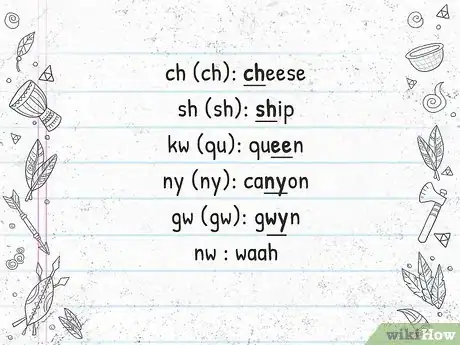 ch (ch): cheese
sh (sh): ship
kw (qu): queen
ny (ny): canyon
gw (gw): gwyn
nw : waah
wikiHow